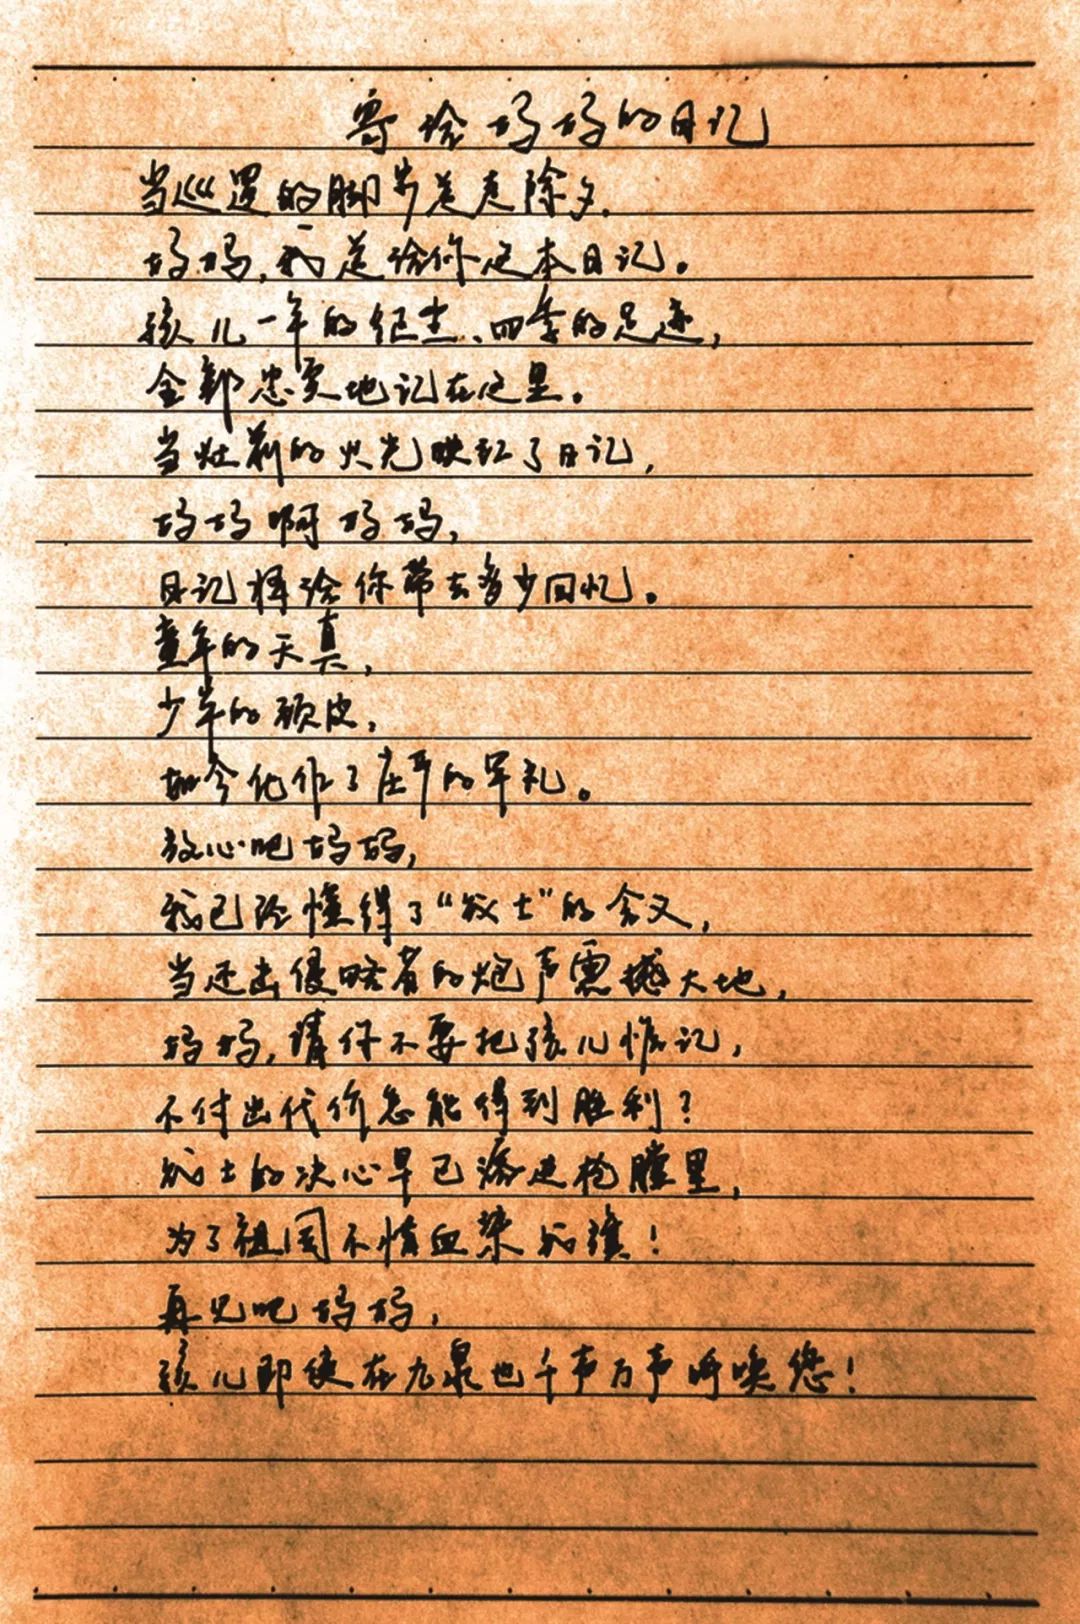 寄给妈妈的日记
当巡逻的脚步送走除夕,
妈妈,我送给你这本日记。
孩儿一年的征尘、四季的足迹,
全都忠实地记在这里。
当灶前的火光映红了日记,
妈妈啊妈妈,
日记将给你带去多少回忆。
童年的天真,
少年的顽皮,
如今化作了庄严的军礼。
放心吧妈妈,
我已经懂得了“战士”的含义,
当还击侵略者的炮声震撼大地,
妈妈,请你不要把孩儿惦记,
不付出代价怎能得到胜利?
战士的决心早已溶进枪膛里,
为了祖国不惜血染战旗!
再见吧妈妈,
孩儿即使在九泉也千声万声呼唤您!